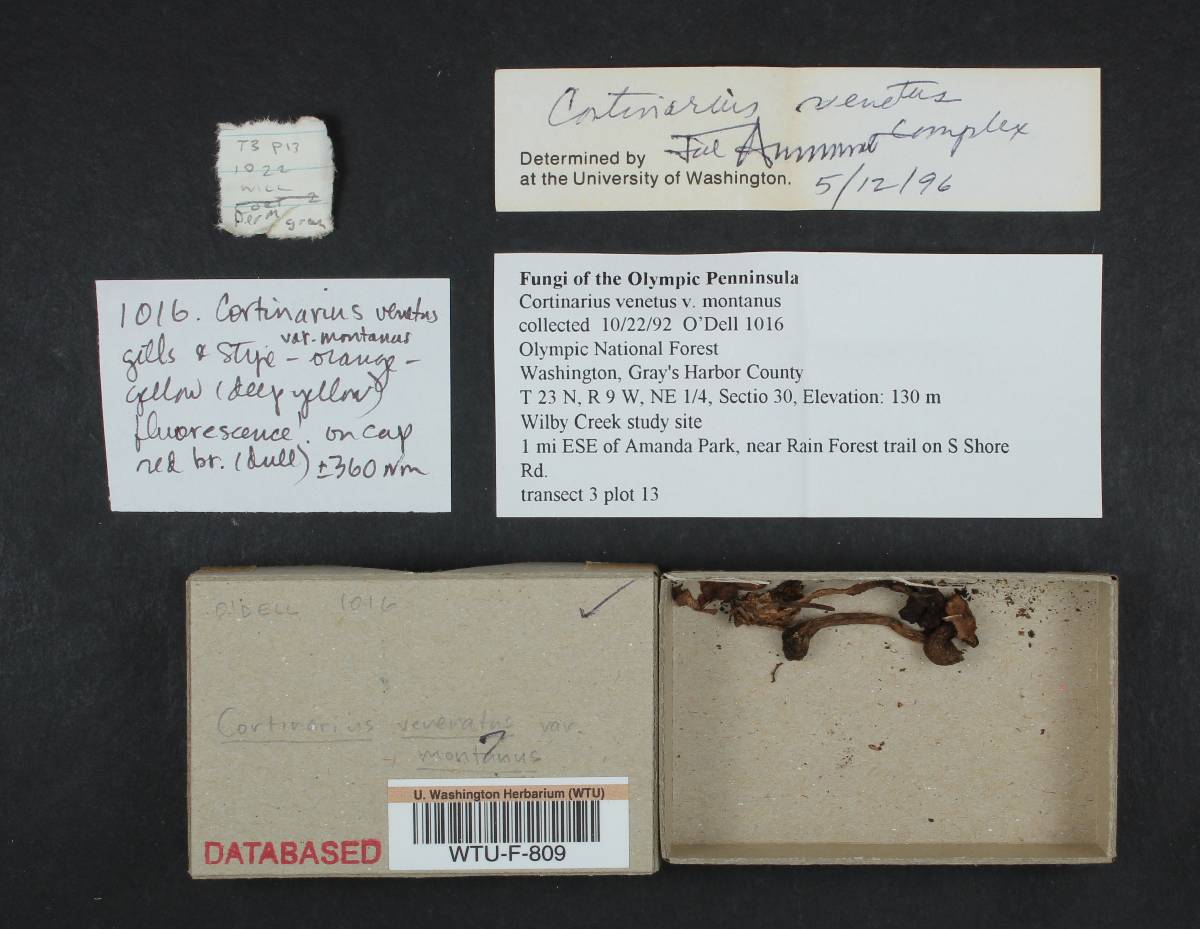 Cortinarius venetus
complex
Determined by Joe Ammirati
at the University of Washington. 5/12/96
T3 P13
1022
WILL
Derm
gray
Fungi of the Olympic Penninsula
Cortinarius venetus v. montanus
collected 10/22/92 O'Dell 1016
Olympic National Forest
Washington, Gray's Harbor County
T 23 N, R 9 W, NE 1/4, Sectio 30, Elevation: 130 m
Wilby Creek study site
1 mi ESE of Amanda Park, near Rain Forest trail on S Shore
Rd.
transect 3 plot 13
1016. Cortinarius venetus
var. montanus
gills & stipe - orange -
yellow (deep yellow)
fluorescence! on cap
red br. (dull) ±360 nm
O'DELL 1016
Cortinarius veneratus var.
montanus
?
DATABASED
U. Washington Herbarium (WTU)
WTU-F-809